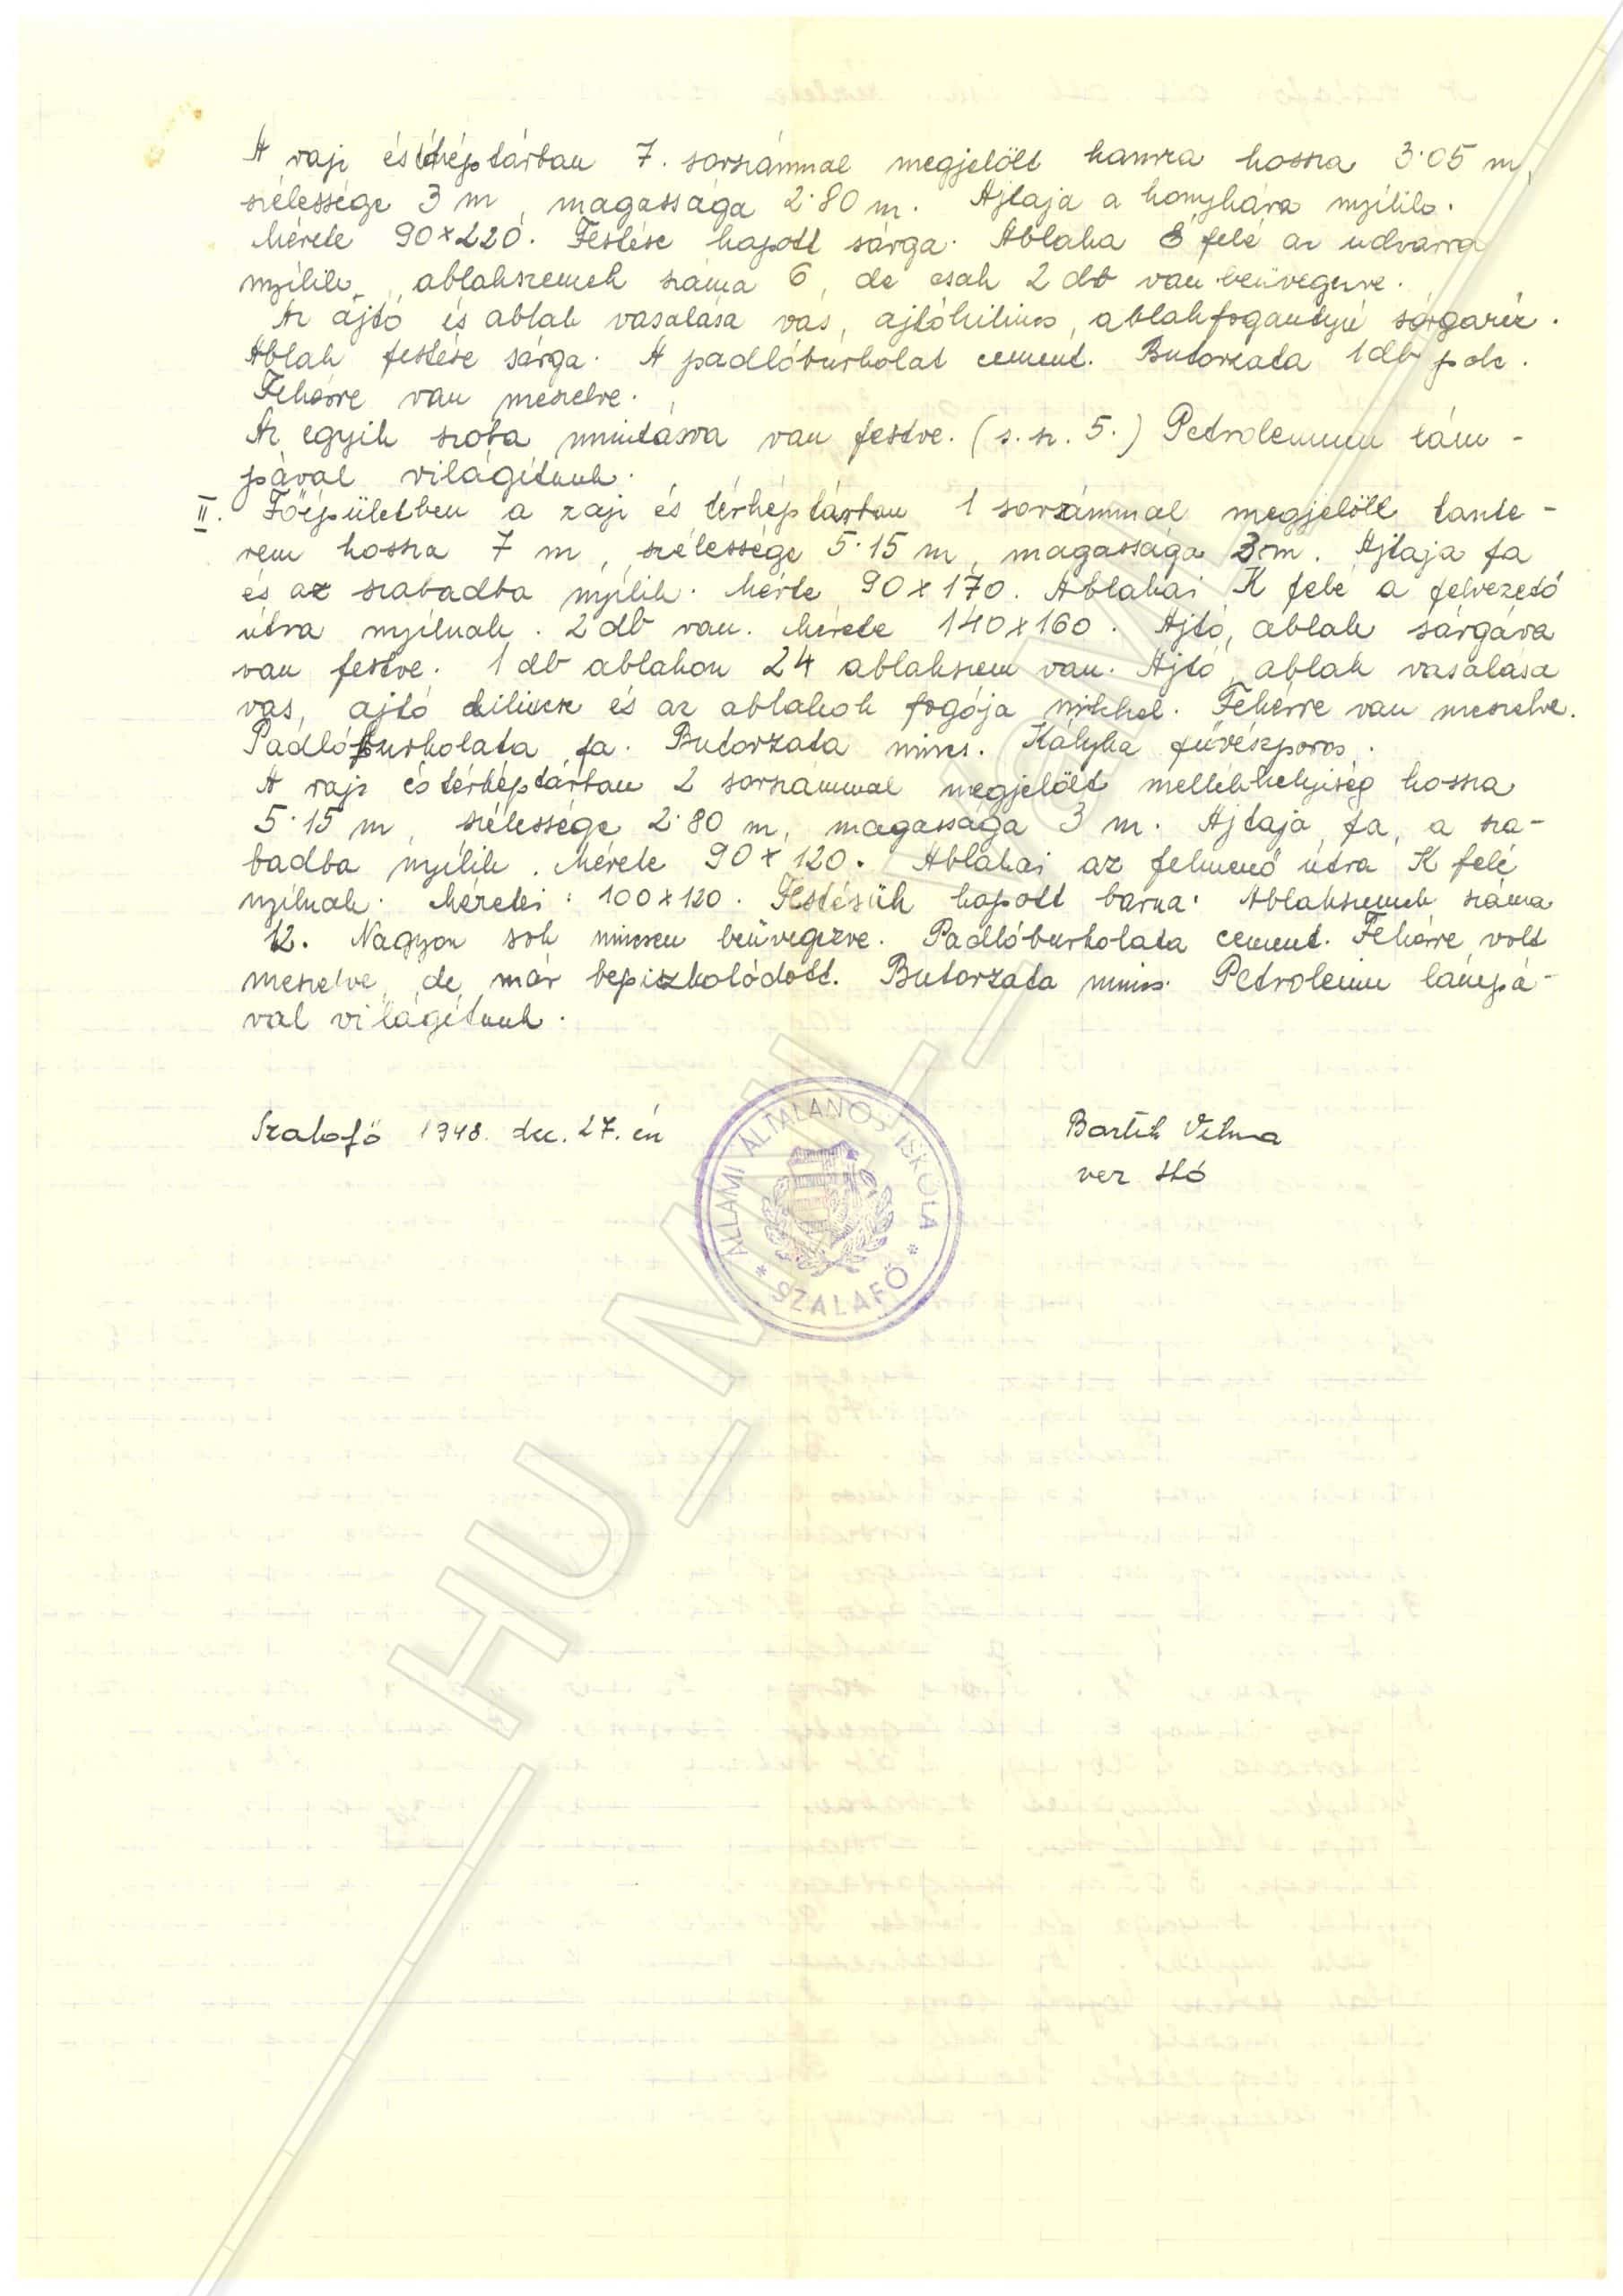 A rajz és térképtárban 7. sorszámmal megjelölt kamra hossza 3·05 m,
szélessége 3 m, magassága 2·80 m. Ajtaja a konyhára nyílik.
Mérete 90x220. Festése kopott sárga. Ablaka É felé az udvarra
nyílik, ablakszemek száma 6, de csak 2 db van beüvegezve.
Az ajtó és ablak vasalása vas, ajtókilincs, ablakfogantyú sárgaréz.
Ablak festése sárga. A padlóburkolat cement. Butorzata 1 db polc.
Fehérre van meszelve.
Az egyik szoba mintásra van festve. (s. sz. 5.) Petroleumm lám-
pával világítunk.
II. Főépületben a rajz és térképtárban 1 sorzámmal megjelölt tante-
rem hossza 7 m, szélessége 5·15 m, magassága 3 m. Ajtaja fa
és az szabadba nyílik. Mérte 90x170. Ablakai K felé a felvezető
útra nyílnak. 2 db van. Mérete 140x160. Ajtó, ablak sárgára
van festve. 1 db ablakon 24 ablakszem van. Ajtó, ablak vasalása
vas, ajtó kilincse és az ablakok fogója nikkel. Fehérre van meszelve.
Padlóburkolata fa. Butorzata nincs. Kályha fűrészporos.
A rajz és térképtárban 2 sorszámmal megjelölt mellékhelyiség hossza
5·15 m, szélessége 2·80 m, magassága 3 m. Ajtaja fa, a sza-
badba nyílik. Mérete 90x120. Ablakai az felmenő útra K felé
nyílnak. Méretei: 100x120. Festésük kopott barna. Ablakszemek száma
12. Nagyon sok nincsen beüvegezve. Padlóburkolata cement. Fehérre volt
meszelve, de már bepiszkolódott. Butorzata nincs. Petroleum lámpá-
val világítunk.
Szalafő 1948. dec. 27. én
ÁLLAMI ÁLTALÁNOS ISKOLA
* SZALAFŐ *
Bartik Vilma
vez
HU_MNL_